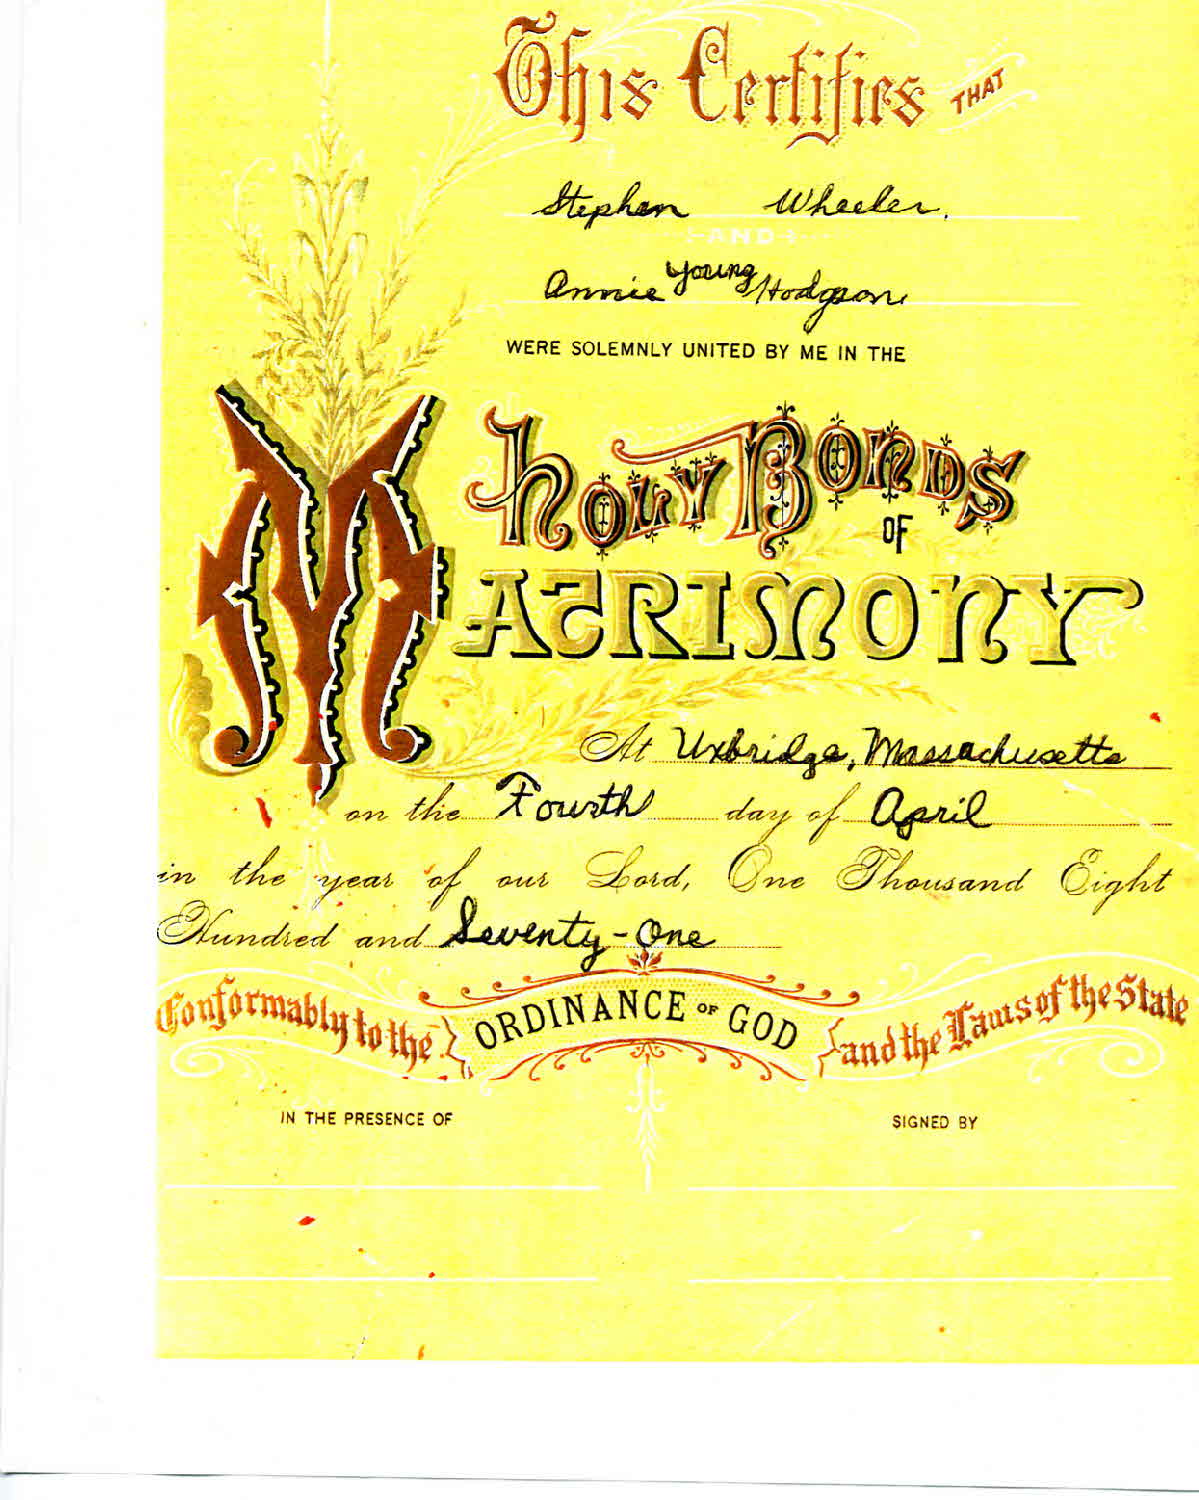 This Certifies THAT
Stephen Wheeler.
AND
Annie Young Hodgson
WERE SOLEMNLY UNITED BY ME IN THE
HOLY BONDS
OF
MATRIMONY
At Uxbridge, Massachusetts
on the Fourth day of April
in the year of our Lord, One Thousand Eight
Hundred and Seventy-One
Conformably to the ORDINANCE OF GOD and the Laws of the State
IN THE PRESENCE OF SIGNED BY